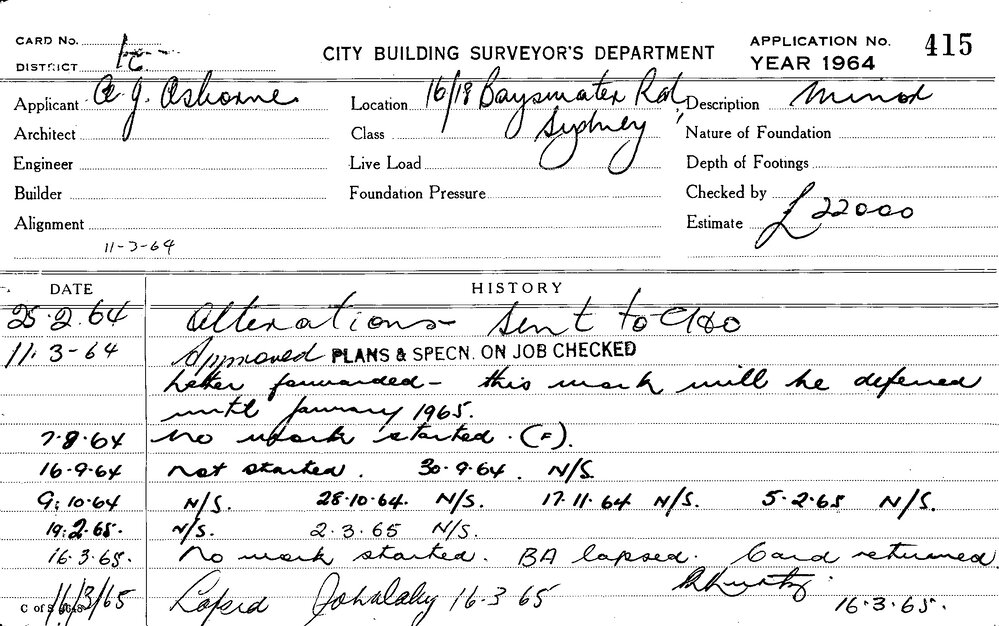 CARD No.
DISTRICT
CITY BUILDING SURVEYOR'S DEPARTMENT
APPLICATION No. 415
YEAR 1964
Applicant A. J. Osborne. Location 16/18 Bayswater Rd, Description Minor
Architect Class Sydney Nature of Foundation
Engineer Live Load Depth of Footings
Builder Foundation Pressure Checked by
Alignment Estimate £22000
11-3-64
DATE HISTORY
25.2.64 Alterations sent to
11.3-64 Approved PLANS & SPECN. ON JOB CHECKED
Letter forwarded - this work will be deferred
until January 1965.
7.8.64 No work started. (F).
16-9-64 not started. 30-9-64. N/S.
9.10.64 N/S. 28.10.64. N/S. 17.11.64 N/S. 5.2.65 N/S.
19.2.65. N/S. 2.3.65 N/S.
16.3.65. No work started. BA lapsed. Card returned.
16.3.65.
11/3/65 Lapsed 16.3 65
C of S